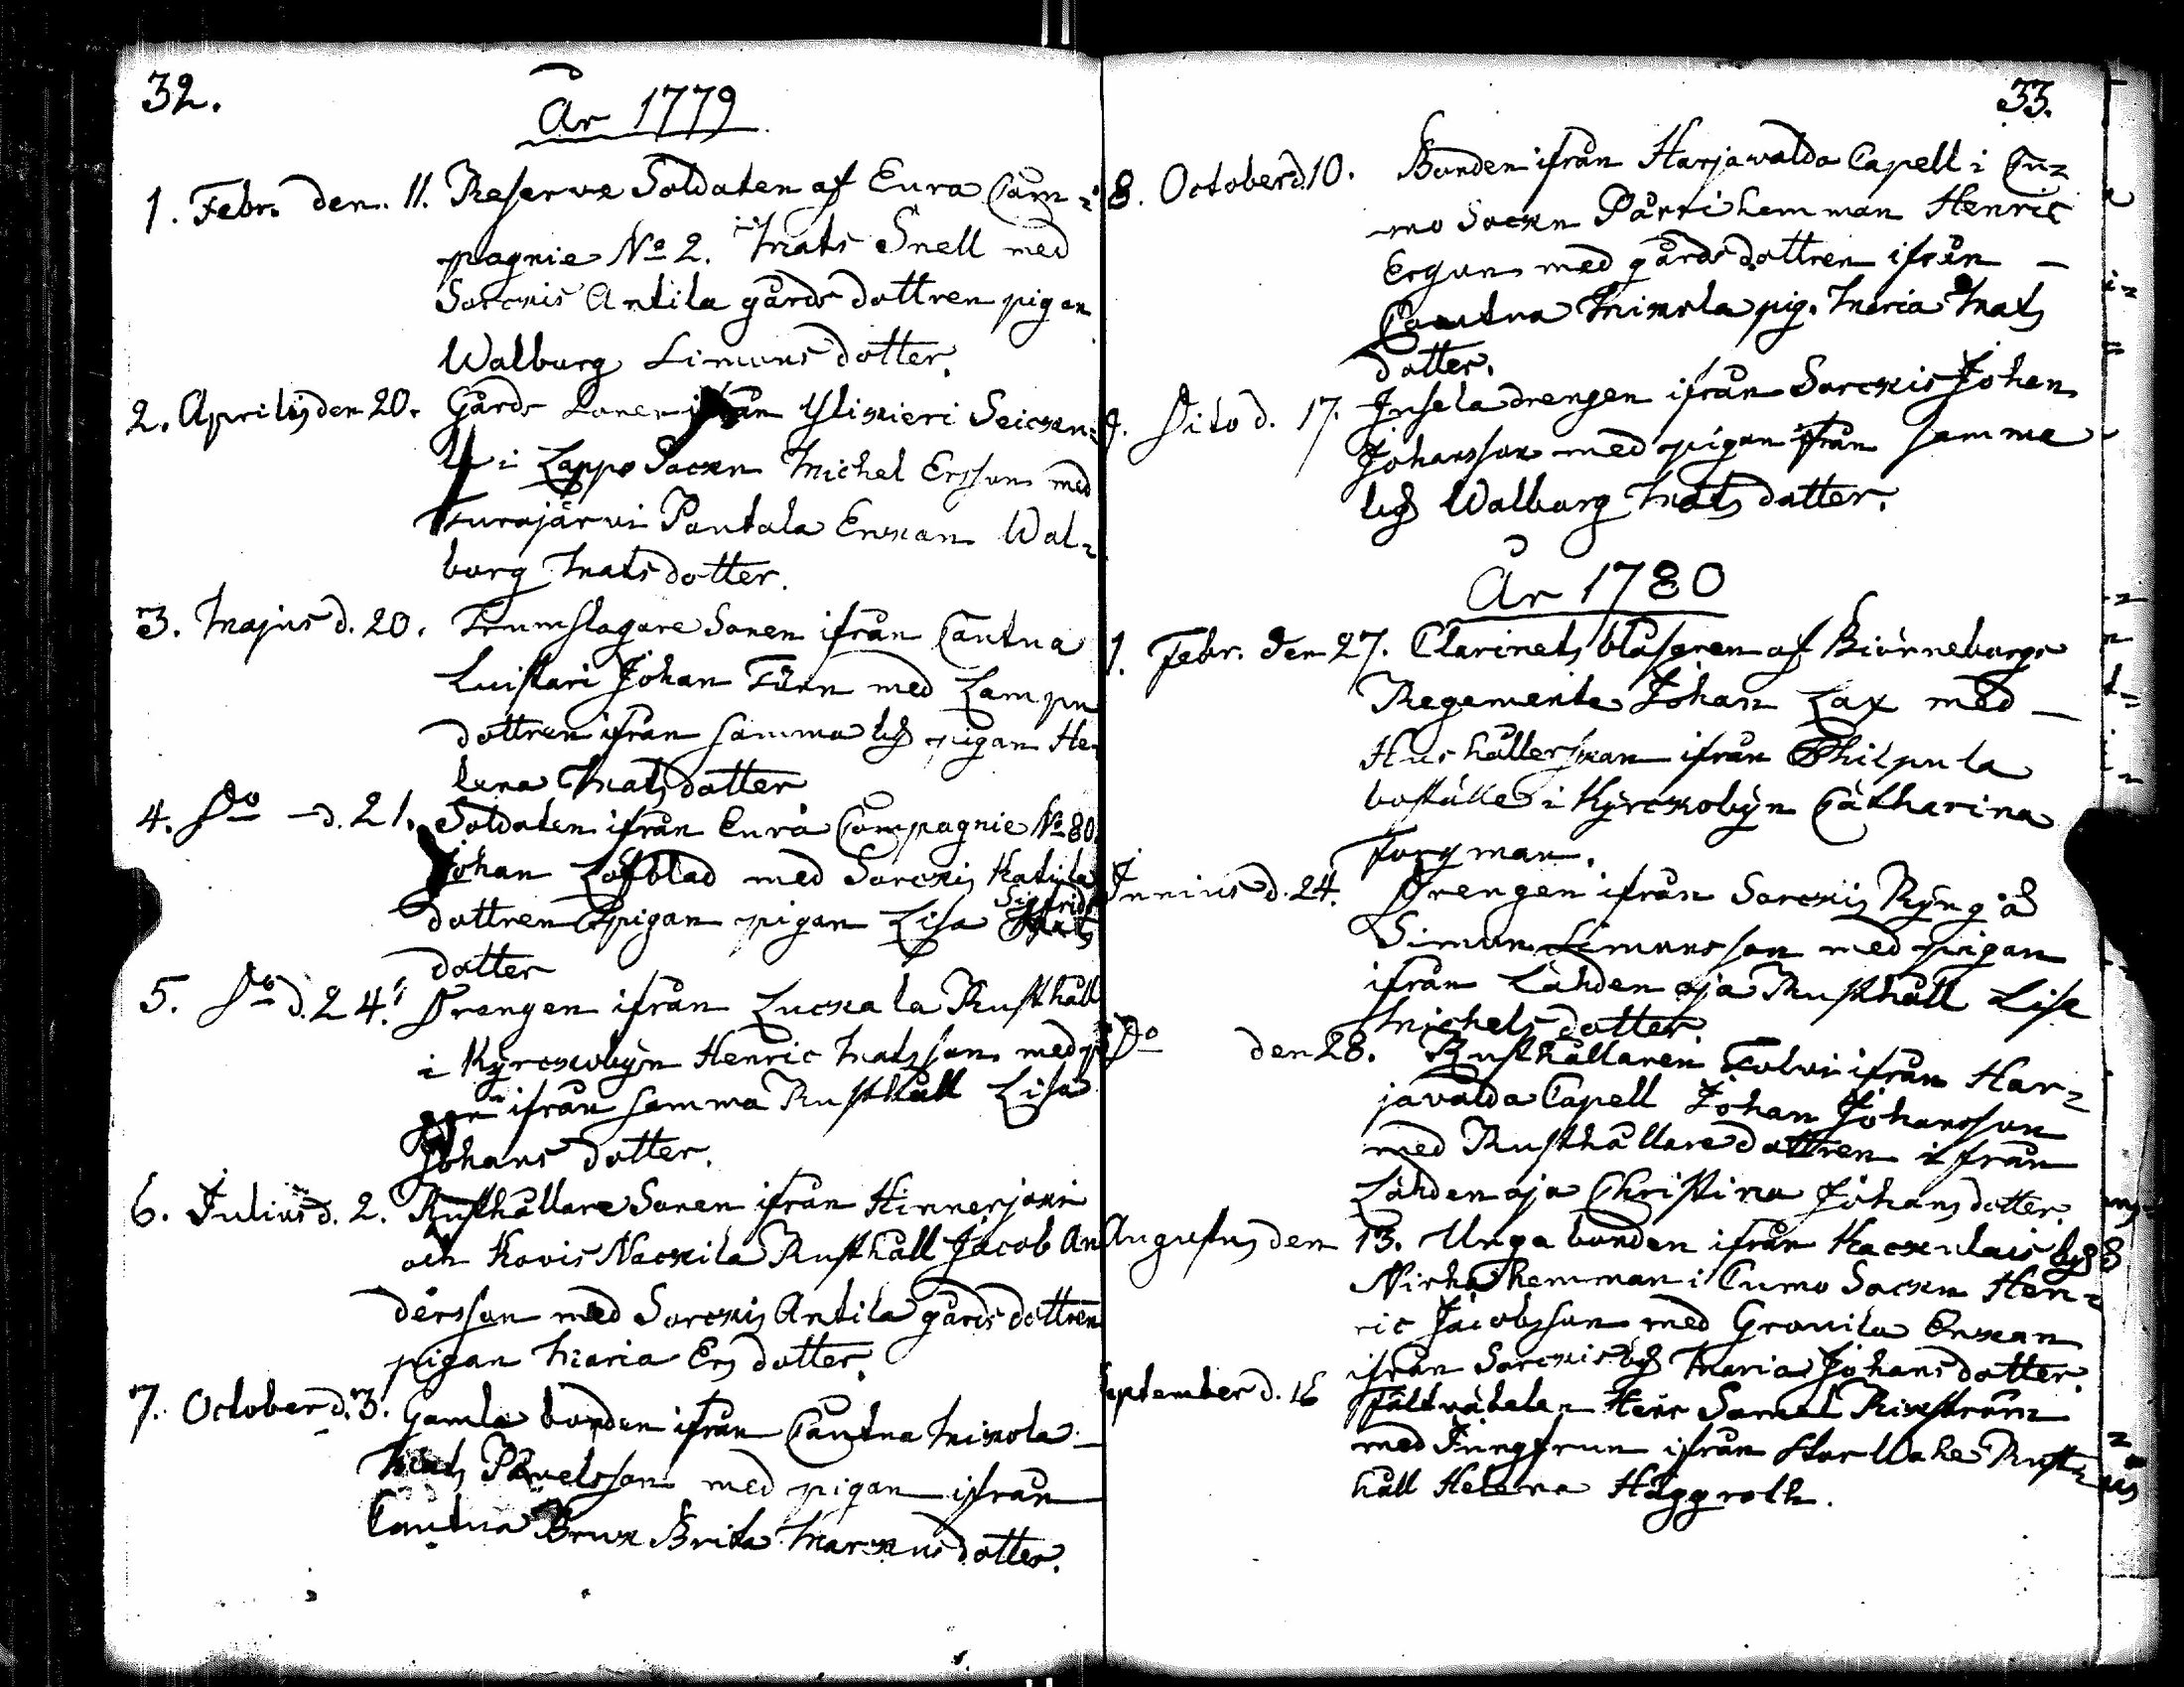 32.
År 1779
1. Febr. den. 11. Reserve Soldaten af Eura Com=
pagnie No 2. Mats Snell med
Sorckis Antila gårds dottren pigan
Walburg Simons dotter.
2. Aprilis den 20. Gårds Sonen ifrån Yliskieri
i Lappo Sockn Michel Ersson med
Turajärvi Pantala Enkan Wal=
borg Mats dotter.
3. Majus d. 20. Trumslagare Sonen ifrån Cautua
Luistari Johan Törn med Lampu
dottren ifrån samma by pigan He=
lena Mats dotter
4. Do d. 21. Soldaten ifrån Eura Compagnie No 80.
Johan Löfblad med Sorckis Katila
dottren pigan pigan Lisa Sigfrids
dotter
5. Do d. 24. Drengen ifrån Luckala Rusthåll
i Kyrckobyn Henric Matsson med pi
gan ifrån samma Rusthåll Lisa
Johans dotter.
6. Julius d. 2. Rusthållare Sonen ifrån Hinnerjoki
och Kovis Nackila Rusthåll Jacob An
dersson med Sorckis Antila gårds dottren
pigan Maria Ers dotter.
7. October d. 3. Gamla bonden ifrån Cautua Mickola
Mats Påvelsson med pigan ifrån
Cautua Bruk Brita Marckus dotter.
33.
8. October d. 10. Bonden ifrån Harjavalda Capell i Cu=
mo Sockn Pårri hemman Henric
Ersson med gårds dottren ifrån
Cautua Mickola pig. Maria Mats
dotter.
9. Dito d. 17. Insola drengen ifrån Sorckis Johan
Johansson med pigan ifrån samma
by Walborg Mats dotter.
År 1780
1. Febr. den 27. Clarinets blåsaren af Biörneborgs
Regemente Johan Lax med
Hushållerskan ifrån Philpula
boställe i Kyrckobyn Catharina
Forgman.
Junius d. 24. Drengen ifrån Sorckis Ryngö
Simon Simonsson med pigan
ifrån Lähdenoja Rusthåll Lisa
Michels dotter.
Do den 28. Rusthållaren Torlvi ifrån Har=
javalda Capell Johan Johansson
med Rusthållare dottren ifrån
Lähdenoja Christina Johans dotter.
Augustus den 13. Unga bonden ifrån Kackulais by
hemman i Cumo Sockn Hen=
ric Jacobsson med Gronila Enkan
ifrån Sorckis by Maria Johans dotter.
September d. 16 Fältväbelen Herr Samel Rickström
med Jungfrun ifrån Stor Wahe Rust=
håll Helena Häggroth.